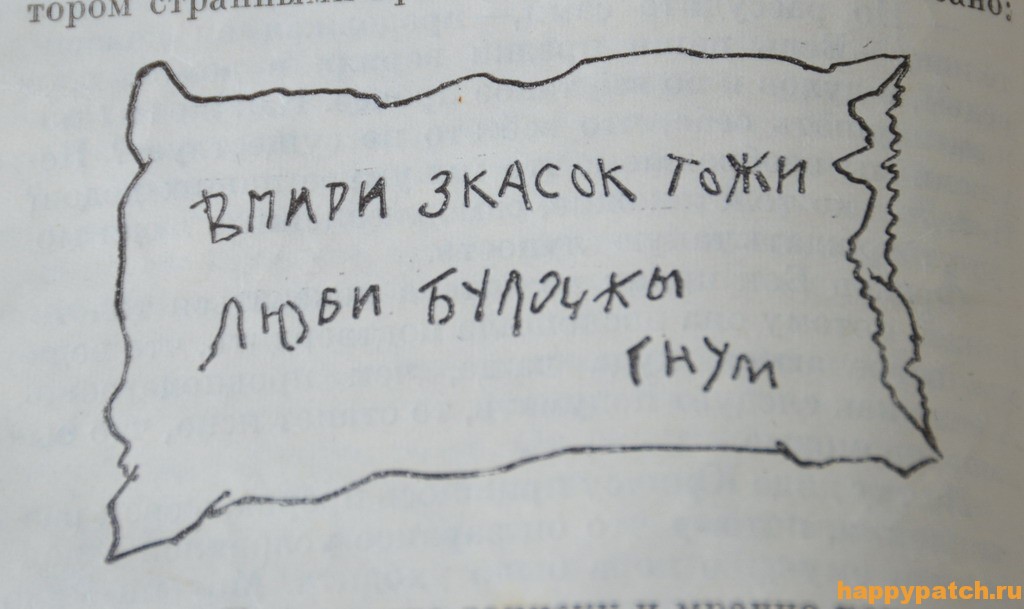 тором странными
ВМИРИ ЗКАСОК ТОЖИ
ЛЮБИ БУЛОЦЖЫ
ГНУМ
happypatch.ru